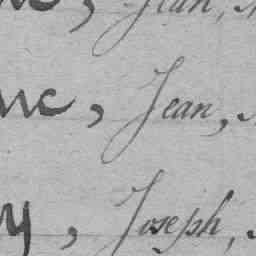 , Jean,
uc, Jean,
y, Joseph,